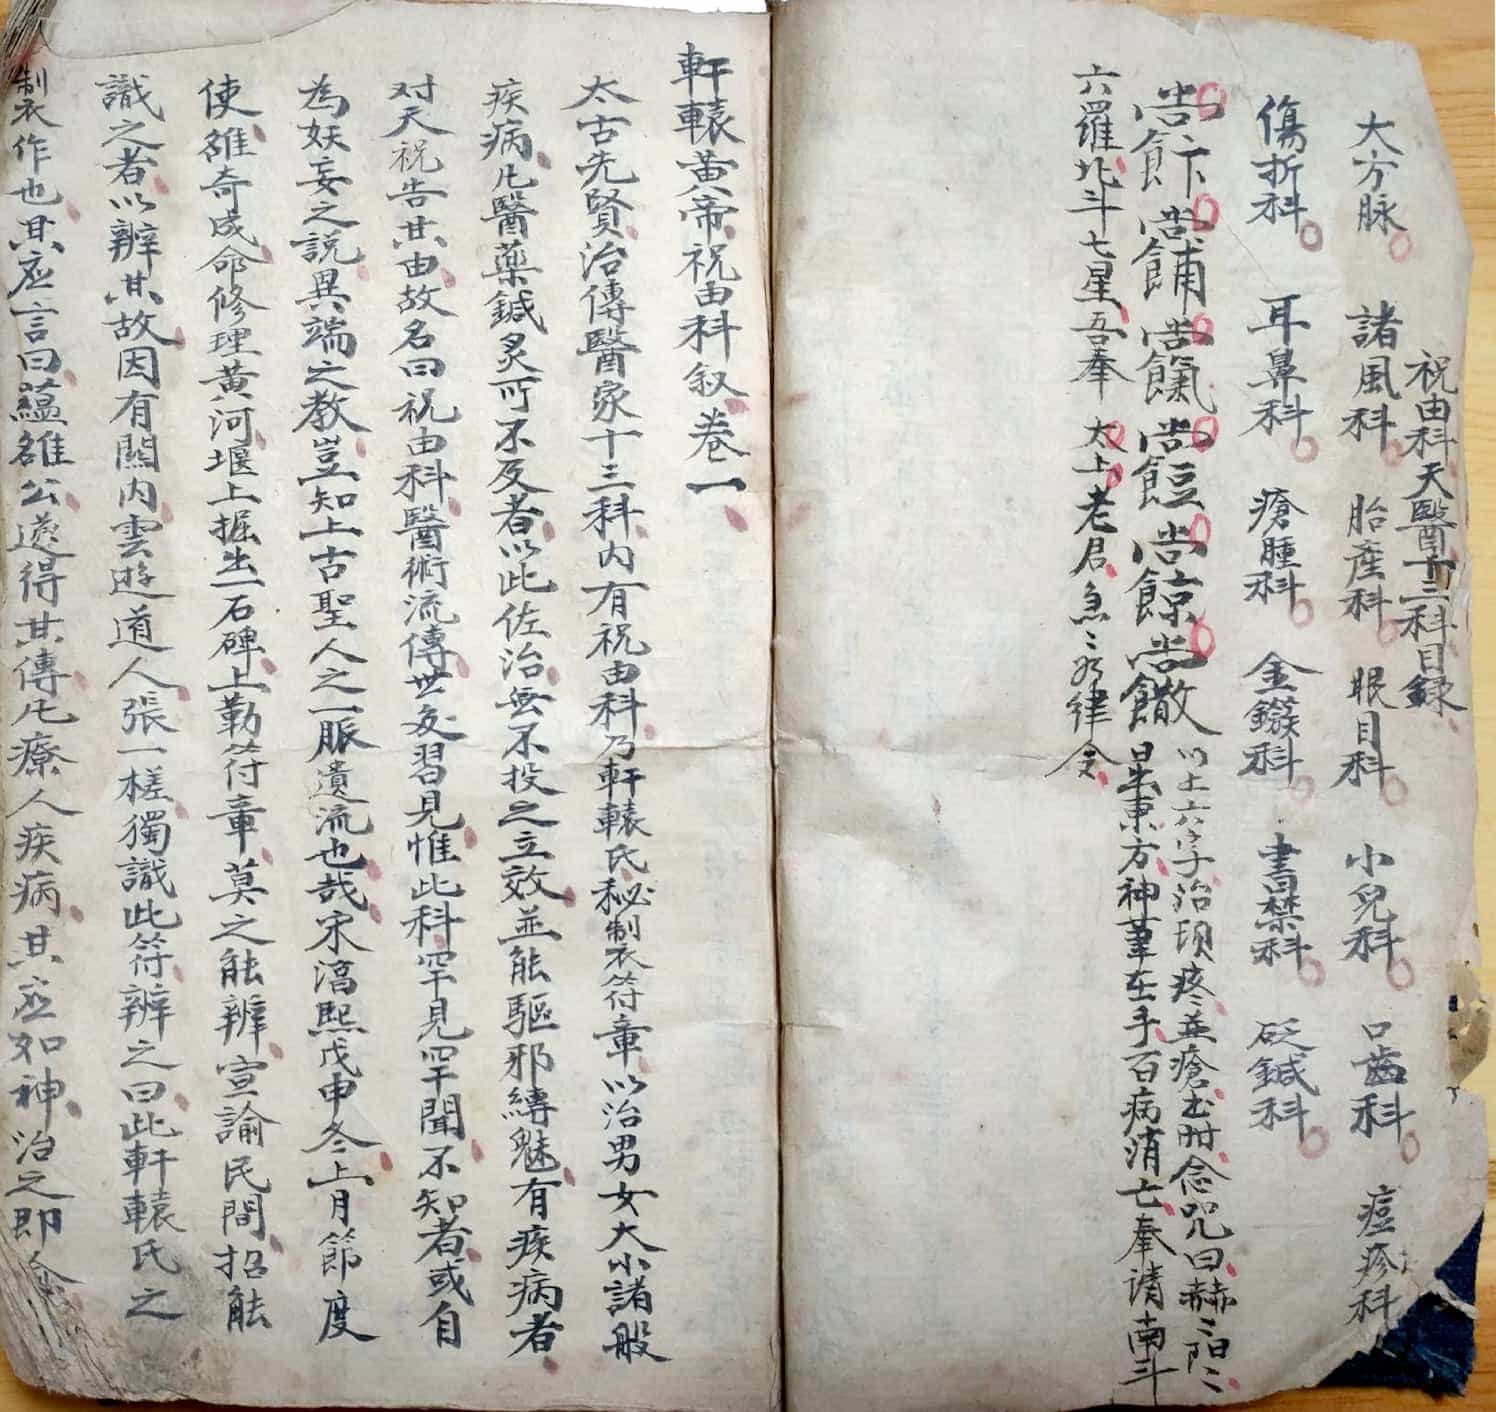 祝由科天醫十三科目錄
大方脉 諸風科 胎產科 眼目科 小兒科 口齒科 痘疹科
傷折科 耳鼻科 瘡腫科 金鏃科 書禁科 砭鍼科
以上六字治項疼並瘡出時念咒曰赫〻陽〻
日出東方神筆在手百病消亡奉请南斗
六羅北斗七星吾奉 太上老君急〻如律令
軒轅黄帝祝由科叙卷一
太古先賢治傳醫家十三科内有祝由科乃軒轅氏秘製符章以治男女大小諸般
疾病凡醫藥鍼炙所不及者以此佐治無不投之立效並能驅邪縛魅有疾病者
对天祝告其由故名曰祝由科醫術流傳世多習見惟此科罕見罕聞不知者或自
為妖妄之説異端之教豈知上古聖人之一脈遺流也哉宋淳熙戊申冬上月節度
使雒奇成命修理黄河堰上掘出一石碑上勒符章莫之能辨宣諭民間招能
識之者以辨其故因有關内雲遊道人張一槎獨識此符辨之曰此軒轅氏之
製作也其应言曰蘊雒公遂得其傳凡療人疾病其应如神治之即